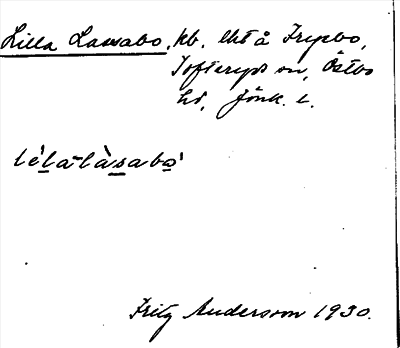 Lilla Lassabo, kb. lht å Frysbo,
Tofteryds sn, Östbo
hd, Jönk. l.
lèla-làsabo
Fritz Andersson 1930.